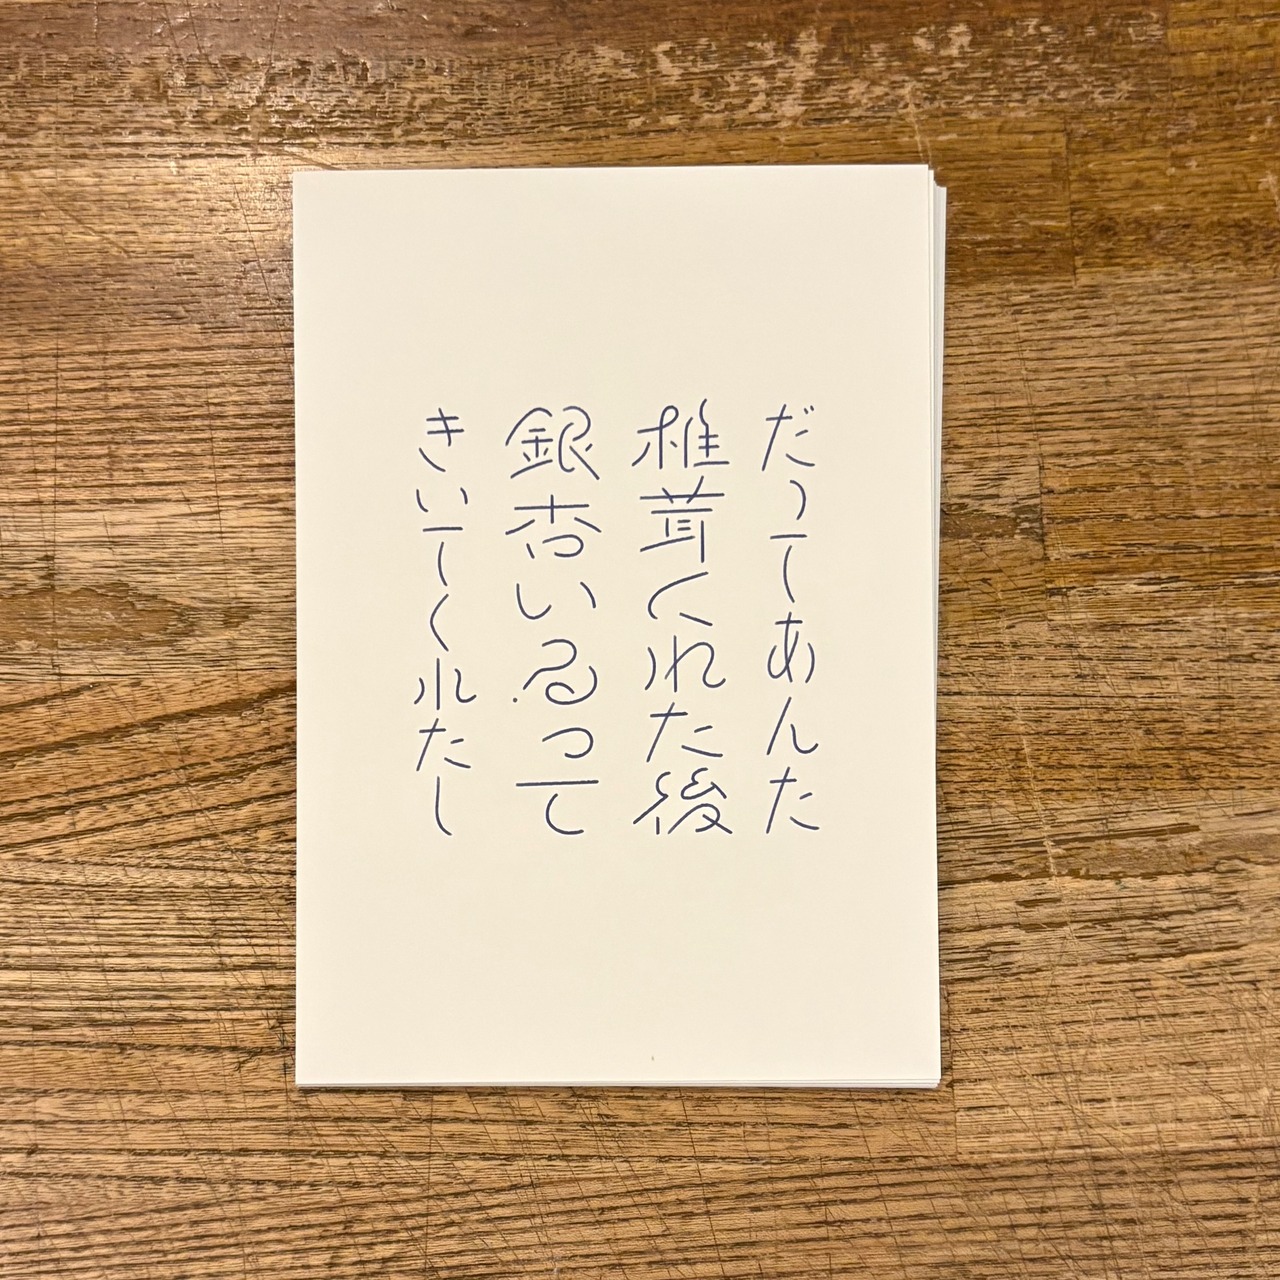 だってあんた
椎茸くれた後
銀杏いるって
きいてくれたし